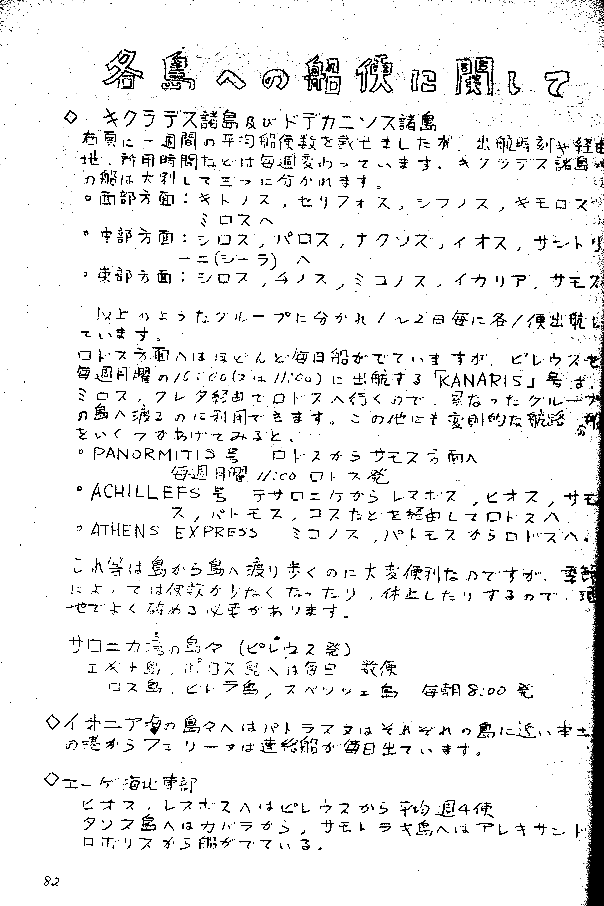 各島への船便に関して
◇ キクラデス諸島及びドデカニソス諸島
右頁に一週間の平均船便数を載せましたが、出航時刻や経由
地、所用時間などは毎週変わっています。キクラデス諸島
の船は大別して三つに分かれます。
○西部方面：キトノス，セリフォス，シフノス，キモロス
ミロスへ
○中部方面：シロス，パロス，ナクソス，イオス，サントリ
ーニ(シーラ) へ
○東部方面：シロス，チノス，ミコノス，イカリア，サモス
以上のようなグループに分かれ1～2日毎に各1便出航し
ています。
ロドス方面へはほとんど毎日船がでていますが、ピレウスを
毎週月曜の10:00(又は11:00)に出航する「KANARIS」号は、
ミロス，クレタ経由でロドスへ行くので、異なったグループ
の島へ渡るのに利用できます。この他にも変則的な航路の船
をいくつかあげてみると、
○PANORMITIS号 ロドスからサモス方面へ
毎週月曜 11:00 ロドス発
○ACHILLEFS号 テサロニケからレスボス，ヒオス，サモ
ス，パトモス，コスなどを経由してロドスへ
○ATHENS EXPRESS ミコノス，パトモスからロドスへ。
これ等は島から島へ渡り歩くのに大変便利なのですが、季節
によっては便数が少なくなったり，休止したりするので，現
地でよく確める必要があります。
サロニカ湾の島々 (ピレウス発)
エギナ島，ポロス島へは毎日 数便
ロス島，ヒドラ島，スペツェ島 毎朝8:00発
◇イオニア海の島々へはパトラス又はそれぞれの島に近い本土
の港からフェリー又は連絡船が毎日出ています。
◇エーゲ海北東部
ヒオス，レスボスへはピレウスから平均週4便
タソス島へはカバラから，サモトラキ島へはアレキサンド
ロポリスから船がでている。
82